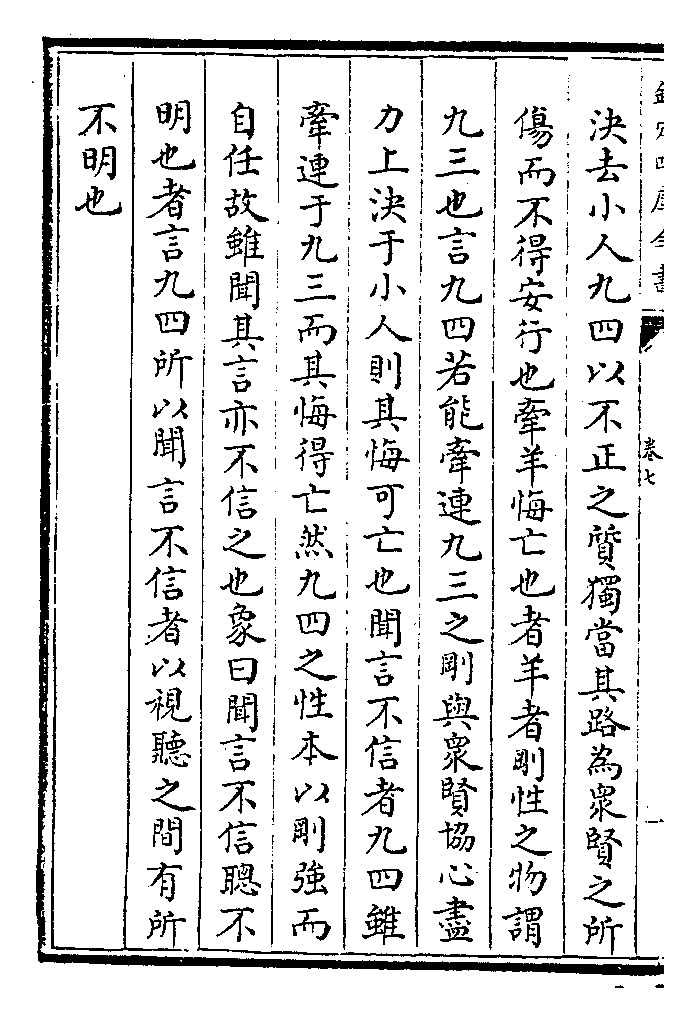 欽定四庫全書
卷七
一
決去小人九四以不正之質獨當其路為衆賢之所
傷而不得安行也牽羊悔亡也者羊者剛性之物謂
九三也言九四若能牽連九三之剛與衆賢協心盡
力上決于小人則其悔可亡也聞言不信者九四雖
牽連于九三而其悔得亡然九四之性本以剛強而
自任故雖聞其言亦不信之也象曰聞言不信聰不
明也者言九四所以聞言不信者以視聽之間有所
不明也